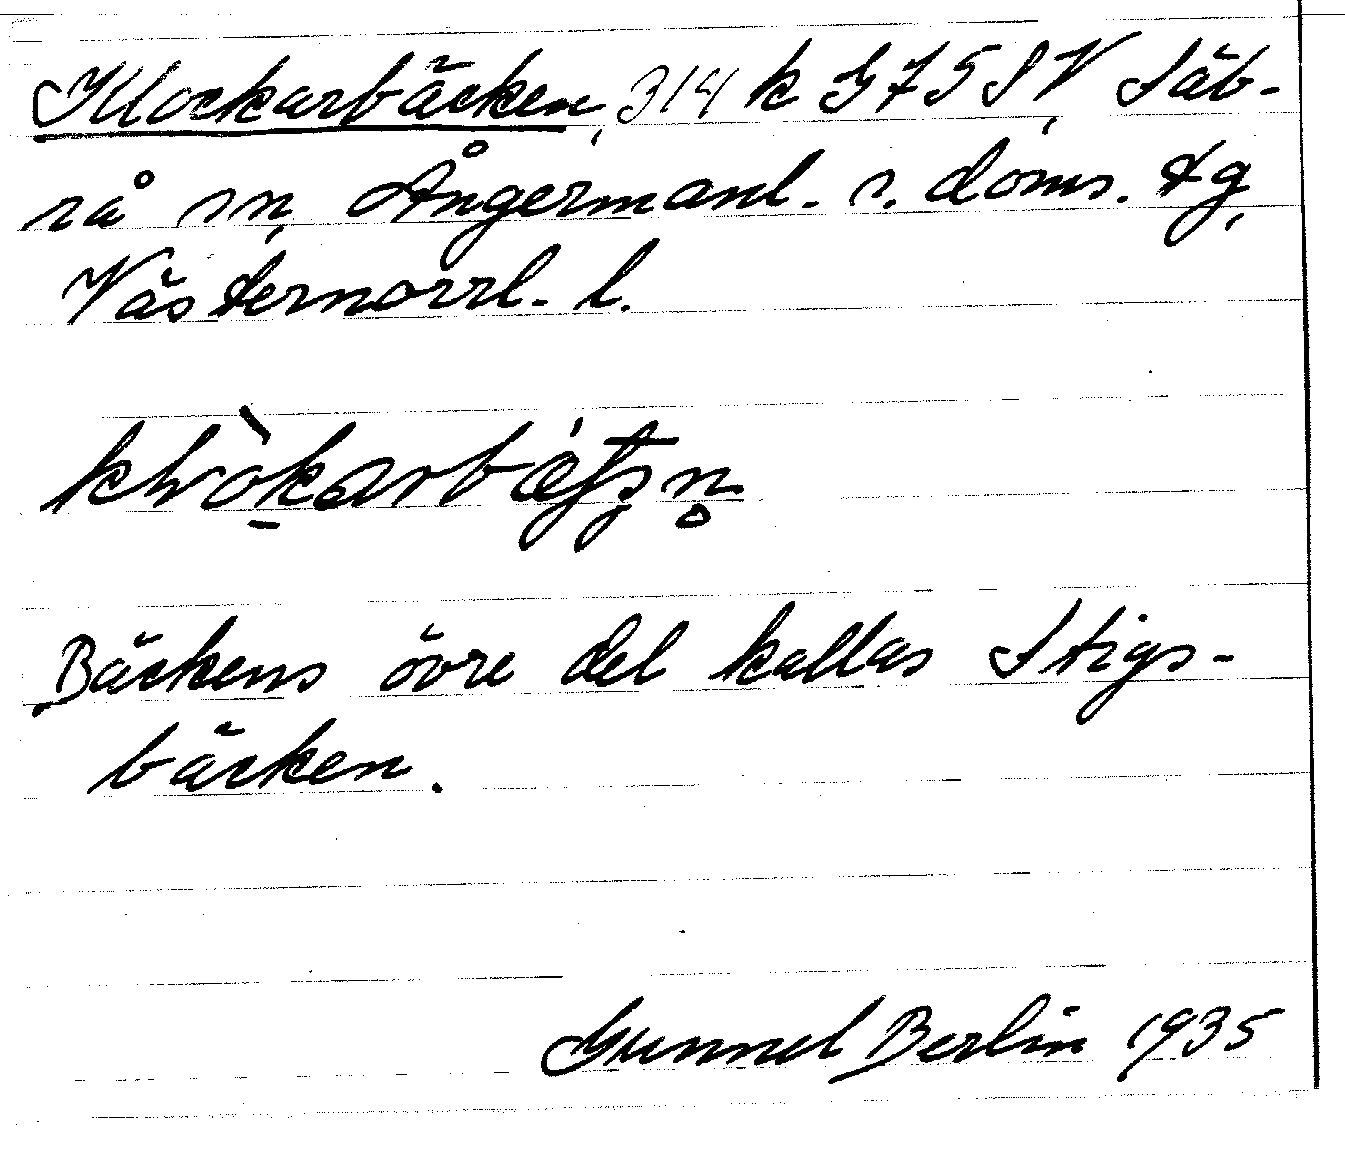 Klockarbäcken, 314 k G75SV, Säb-
rå sn, Ångermanl. s. doms. tg,
Västernorrl. l.
Bäckens övre del kallas Stigs-
bäcken.
Gunnel Berlin 1935